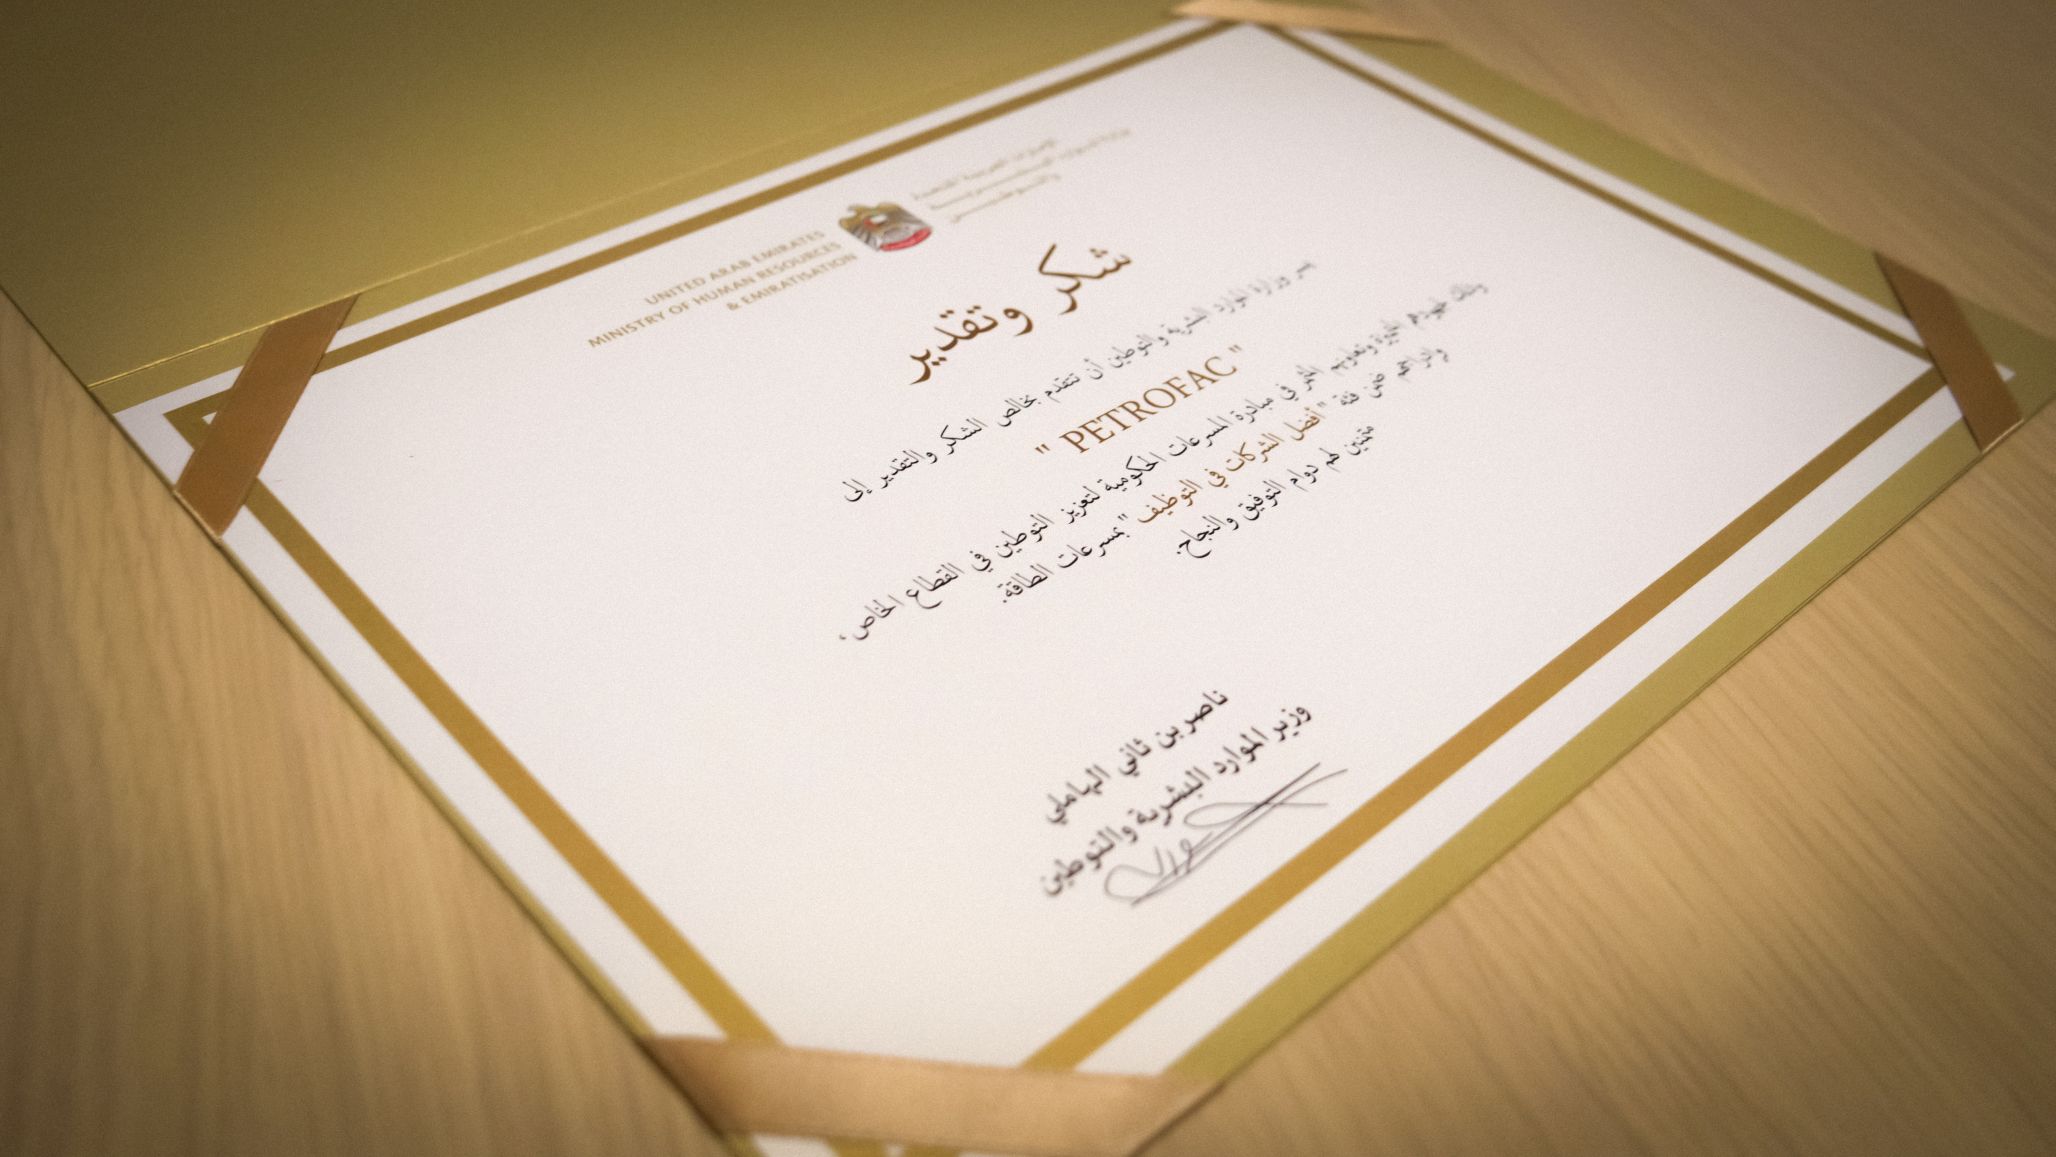 UNITED ARAB EMIRATES
MINISTRY OF HUMAN RESOURCES
& EMIRATISATION
الإمارات العربية المتحدة
وزارة الموارد البشرية
والتوطين
شكر وتقدير
يسر وزارة الموارد البشرية والتوطين أن تتقدم بخالص الشكر والتقدير إلى
" PETROFAC "
وذلك لجهودهم المميزة وتعاونهم المثمر في مبادرة المسرعات الحكومية لتعزيز التوطين في القطاع الخاص،
ولإدراجهم ضمن فئة "أفضل الشركات في التوظيف" بمسرعات الطاقة.
متمنين لهم دوام التوفيق والنجاح.
ناصر بن ثاني الهاملي
وزير الموارد البشرية والتوطين